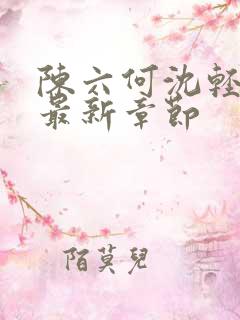 陳六何沈輕
最新章節
陌莫兒